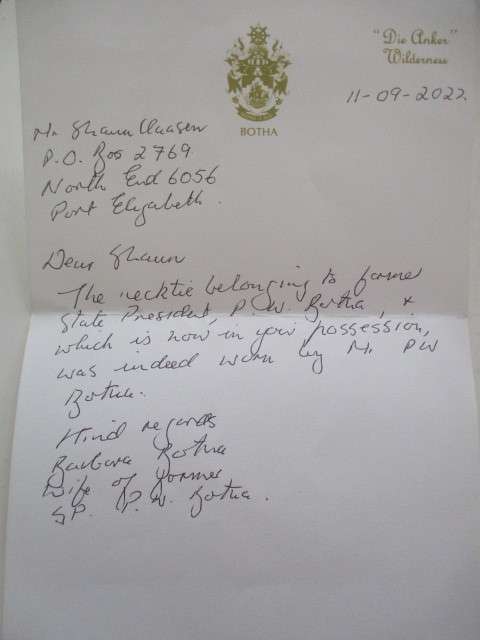 "Die Anker"
Wilderness
BOTHA
11-09-2022.
Mr Shaun Claasen
P.O. Box 2769
North End 6056
Port Elizabeth.
Dear Shaun
The necktie belonging to former
State President, P.W. Botha, &
which is now in your possession,
was indeed worn by Mr PW
Botha.
Kind regards
Barbara Botha
Wife of former
SP. P.W. Botha.